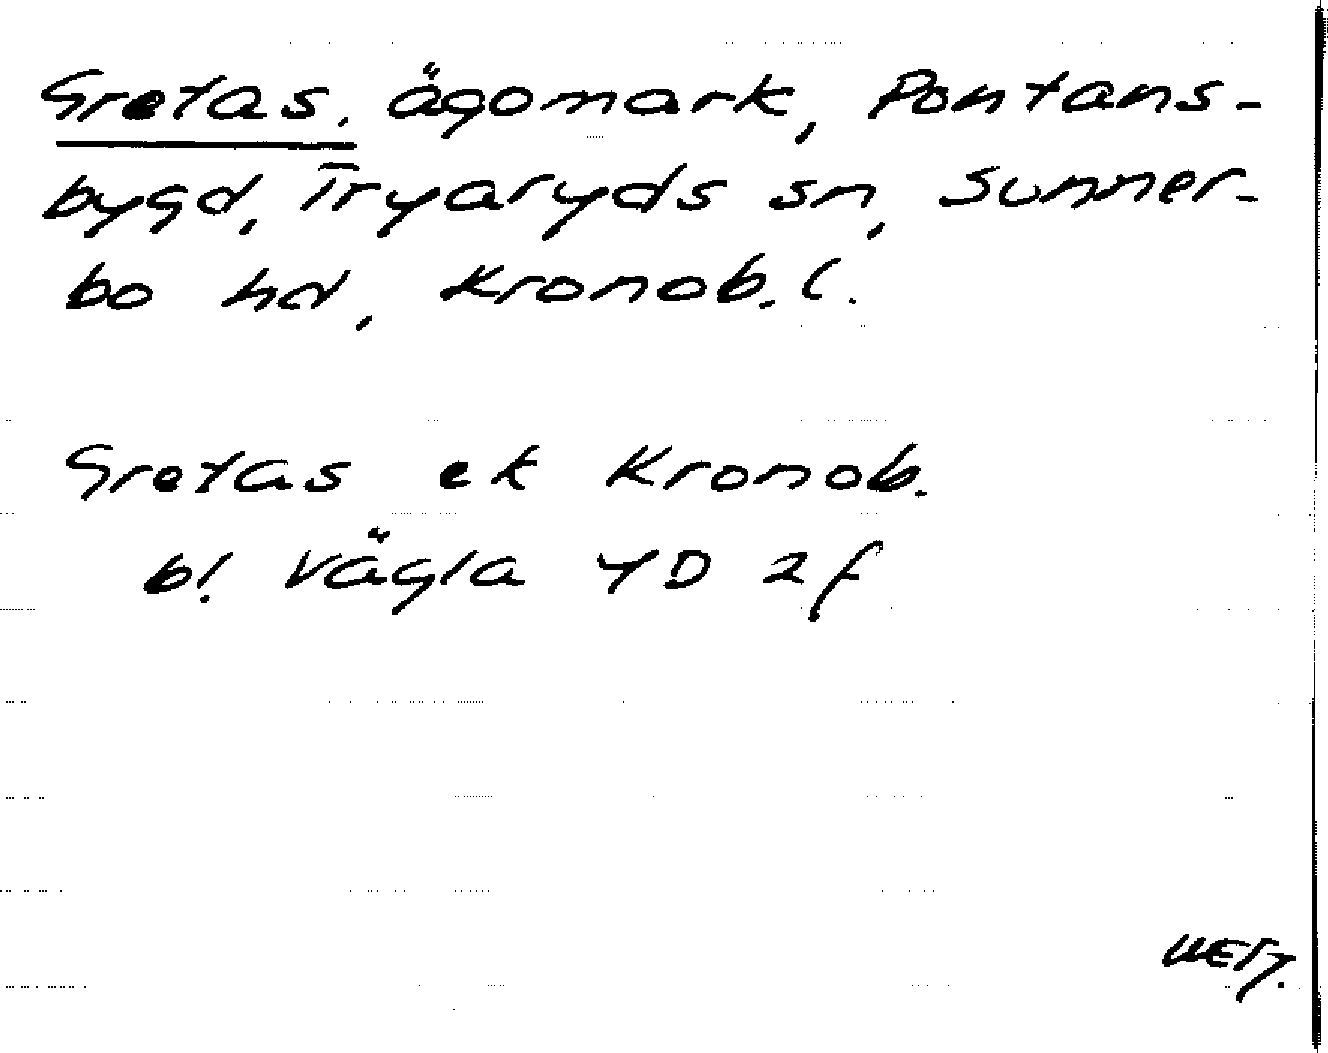 Gretas, ägomark, Pontans-
bygd, Tryaryds sn, Sunner-
bo hd, Kronob. l.
Gretas ek Kronob.
bl Vägla YD 2f